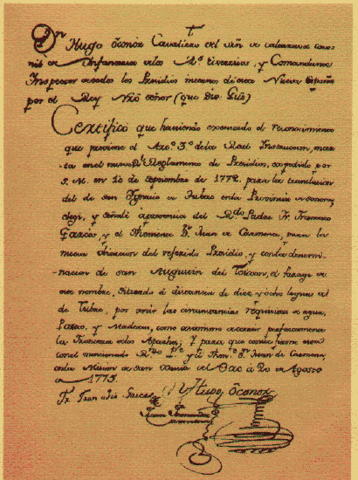 Dn Hugo Oconor Cavallero del orñ de calatrava coro
nel de Infanteria de los Rs. exercitos, y Comandante
Inspector de todos los Presidios internos de esta Nueva España
por el Rey Nrõ señor (que Dios Gũe)
Certifico que haviendo executado el reconocimiento
que previene el Artō. 3º. de la Real Instruccion, inserta
en el nuevo Rl. Reglamento de Presidios, expedido por
S. M. en 10 de septiembre de 1772, para la translacion
del de san Ygnacio de Tubac en la Provincia de Sonora;
elegi, y señale a presencia del Rdo. Padre Fr. Francisco
Garcès, y el Theniente Dn. Juan de Carmona, para la
nueva situacion del referido Presidio, y con la denomi-
nacion de san Augustin del Toixon, el parage de
este nombre, situado à distancia de diez y ocho leguas del
de Tubac, por tener las circunstancias requisitas de agua,
Pastos, y Maderas, como asimismo cerrar perfectamente
la Frontera de los Apaches; Y para que conste firme
con el mencionado Rdo. Pe. y el Thene. Dn. Juan de Carmona,
en la Mision de san Xavier del Bac à 20 de Agosto
de 1775.
Fr. Francisco Garces Hugo Oconor
Juan Fernandez
Carmona